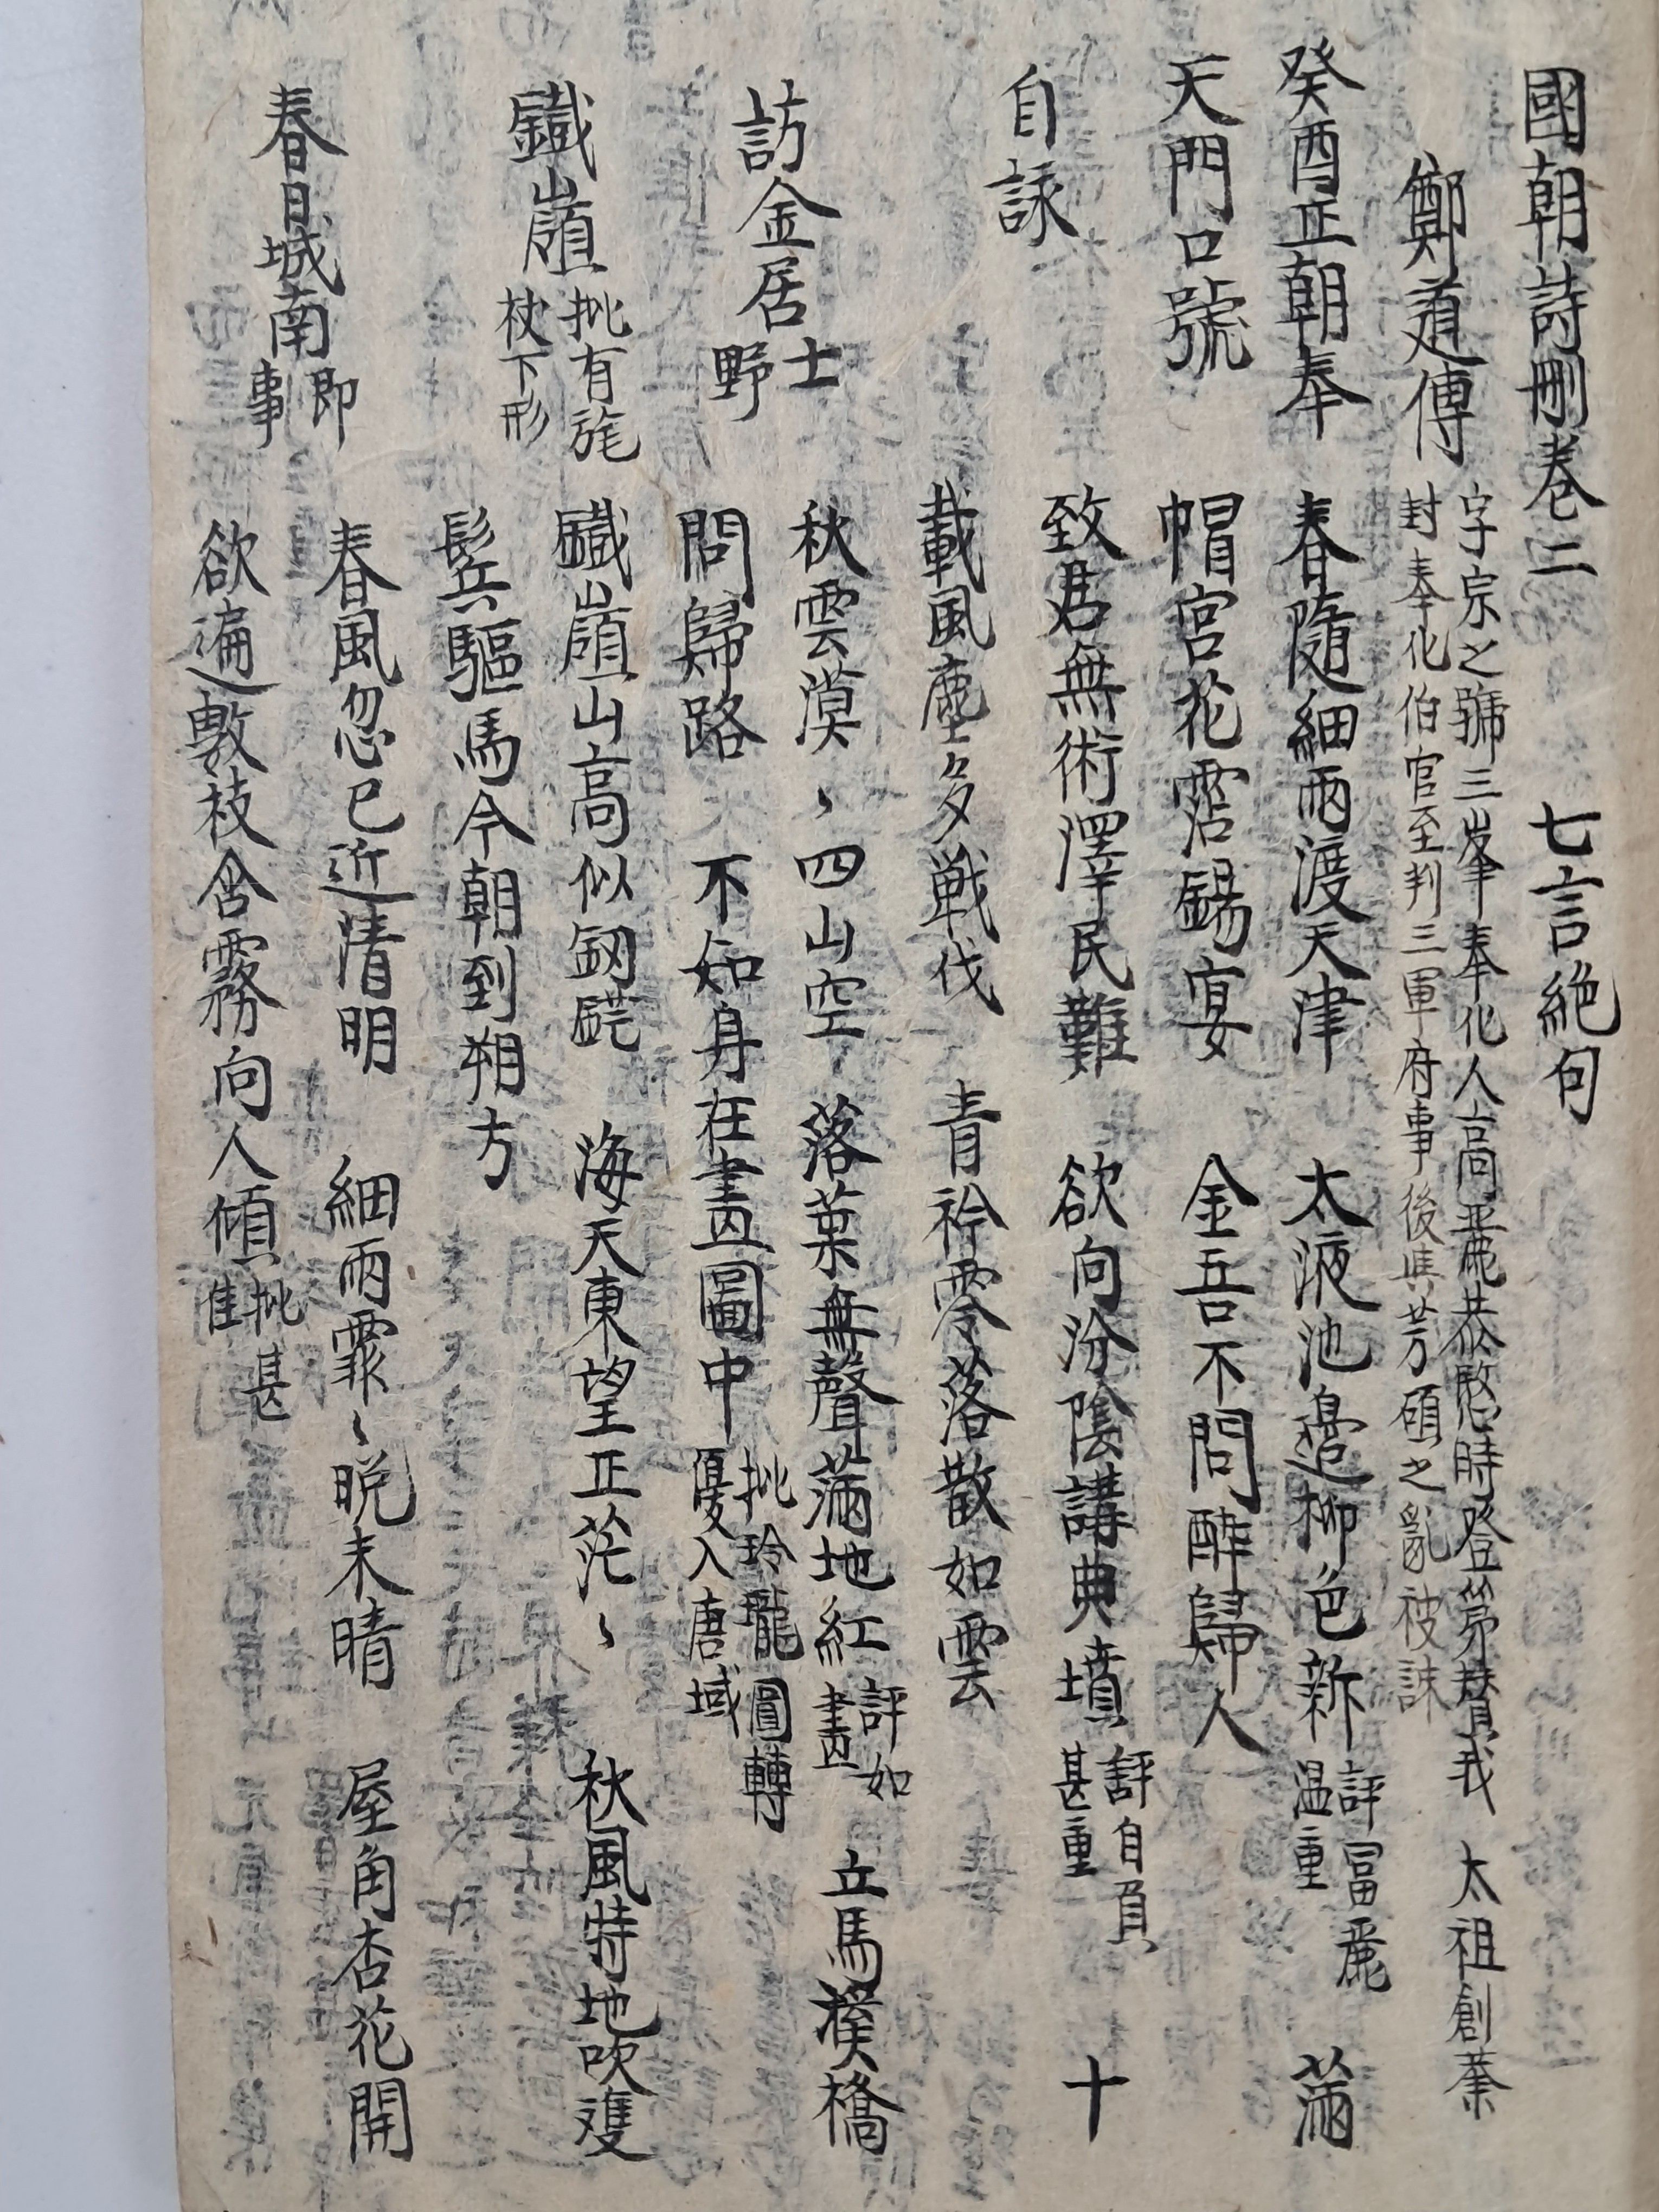 國朝詩刪卷二　七言絕句
鄭道傳　字宗之號三峯奉化人高麗恭愍時登第贊我　太祖創業
封奉化伯官至判三軍府事後與芳碩之亂被誅
癸酉正朝奉　春隨細雨渡天津　太液池邊柳色新　評冨麗
温重　滿
天門口號　帽宮花霑錫宴　金吾不問醉歸人
自詠　致君無術澤民難　欲向汾陰講典墳　評自負
甚重　十
載風塵多戰伐　青衿零落散如雲
訪金居士
野　秋雲漠〻四山空　落葉無聲滿地紅　評如
畫　立馬溪橋
問歸路　不知身在畫圖中　批玲瓏圓轉
優入唐域
鐵嶺　批有旄
杖下形　鐵嶺山高似釼鋩　海天東望正茫〻　秋風特地吹雙
鬂驅馬今朝到朔方
春日城南即
事　春風忽已近清明　細雨霏〻晩未晴　屋角杏花開
欲遍數枝含霧向人傾　批甚
佳